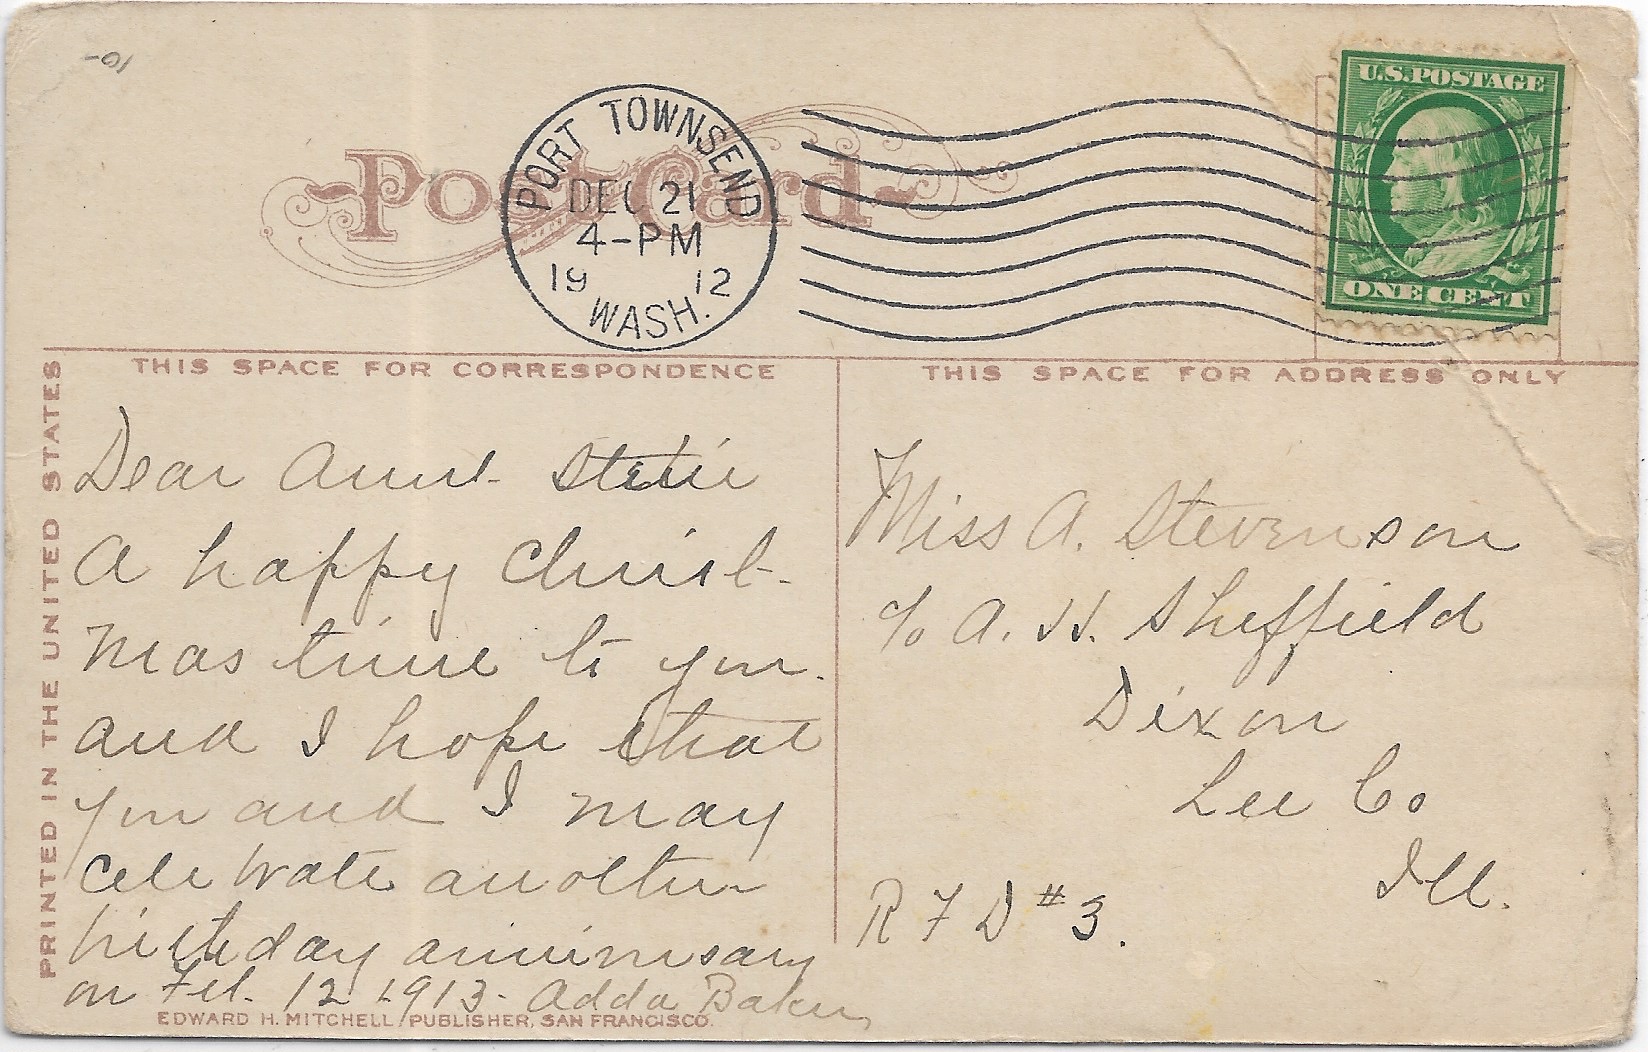 -10-
Post Card
PORT TOWNSEND
DEC 21
4-PM
1912
WASH.
U.S. POSTAGE
ONE CENT
THIS SPACE FOR CORRESPONDENCE
THIS SPACE FOR ADDRESS ONLY
PRINTED IN THE UNITED STATES
Dear Aunt
A happy Christ-
mas time to you.
and I hope that
you and I may
celebrate another
birthday anniversary
on Feb. 12 1913. Adda Baker
EDWARD H. MITCHELL, PUBLISHER, SAN FRANCISCO.
Miss A. Stevenson
c/o A. H. Sheffield
Dixon
Lee Co
Ill.
R F D #3.